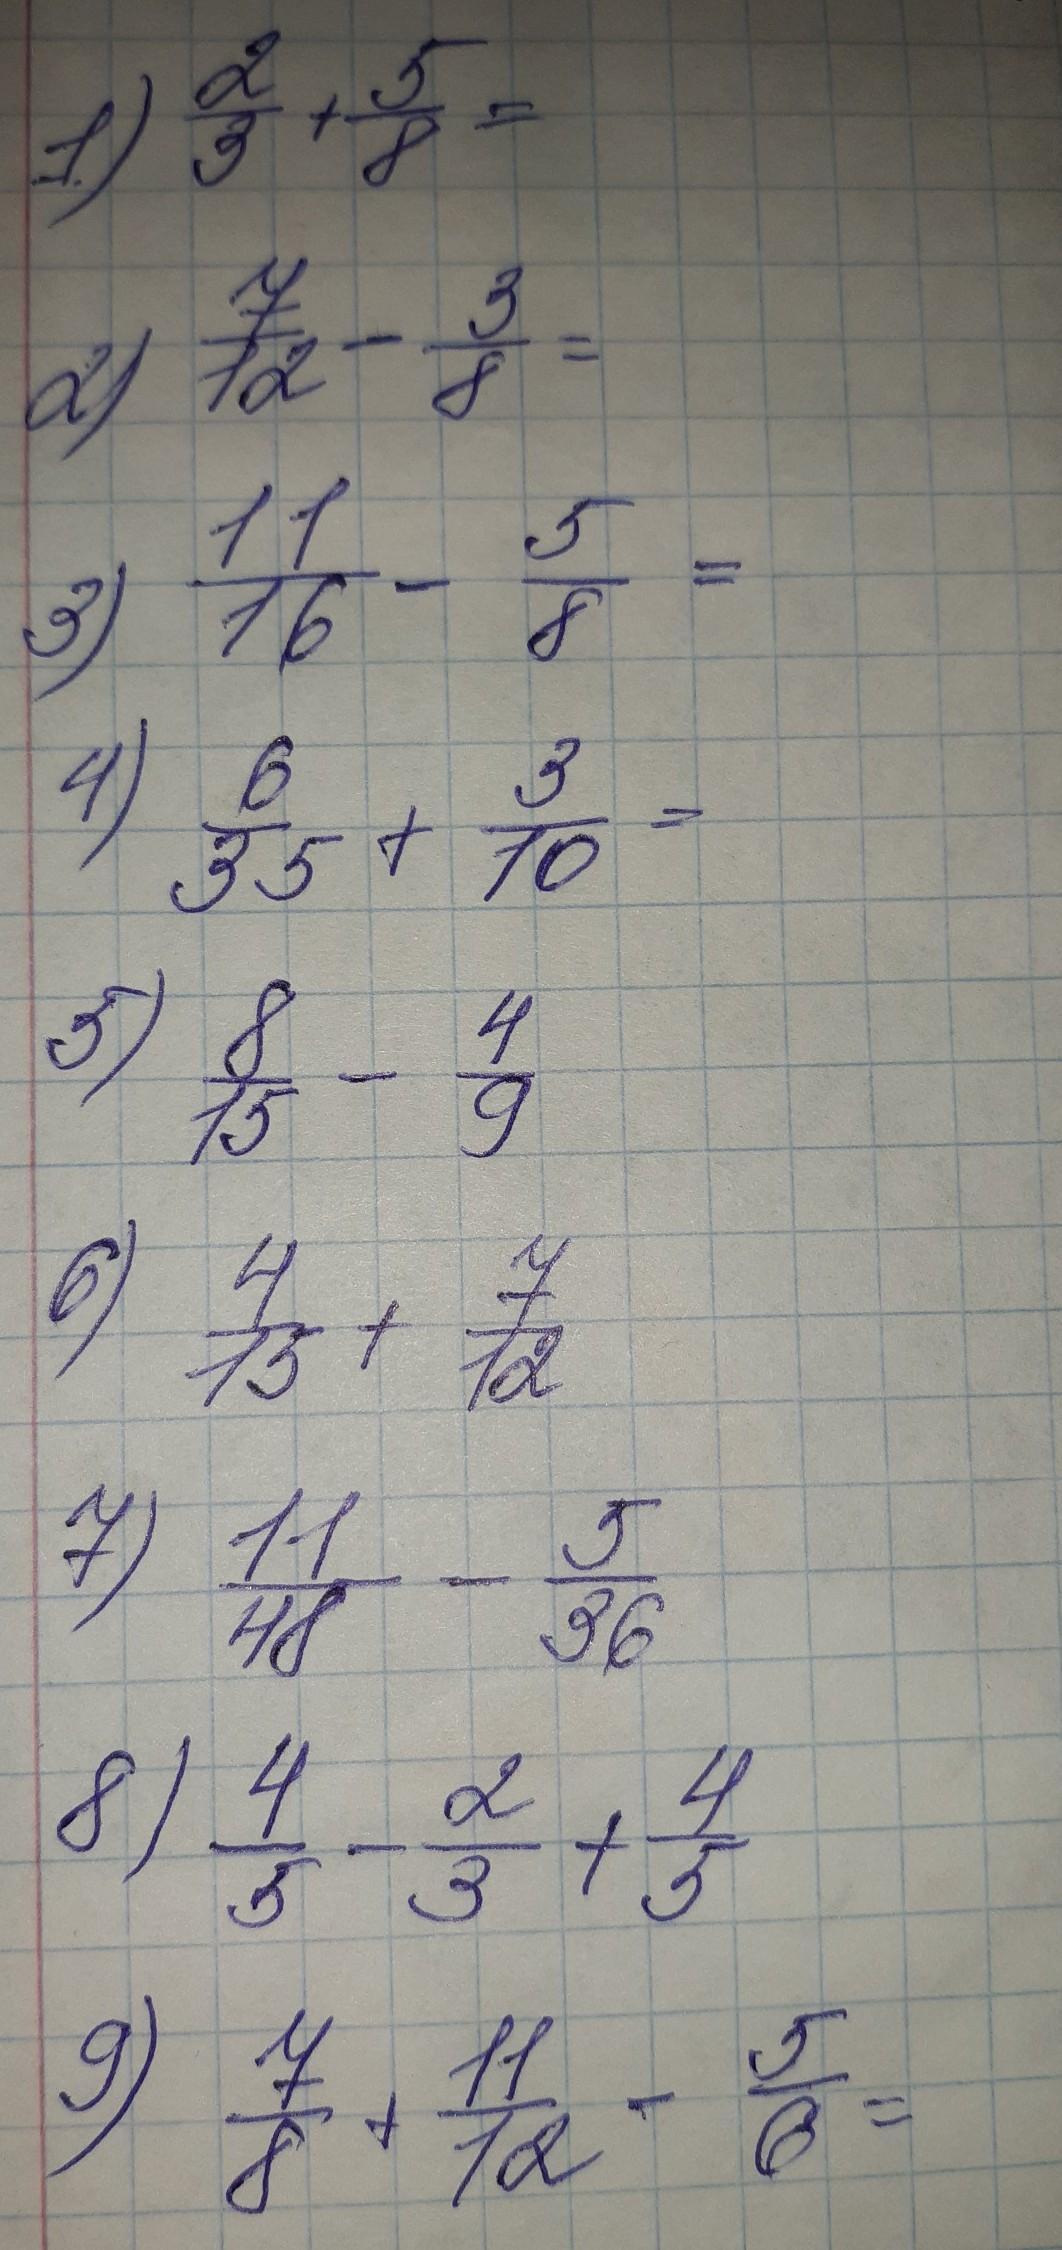 1) 2/3 + 5/8 =
2) 7/12 - 3/8 =
3) 11/16 - 5/8 =
4) 6/35 + 3/10 =
5) 8/15 - 4/9
6) 4/15 + 7/12
7) 11/48 - 5/36
8) 4/5 - 2/3 + 4/5
9) 7/8 + 11/12 - 5/6 =